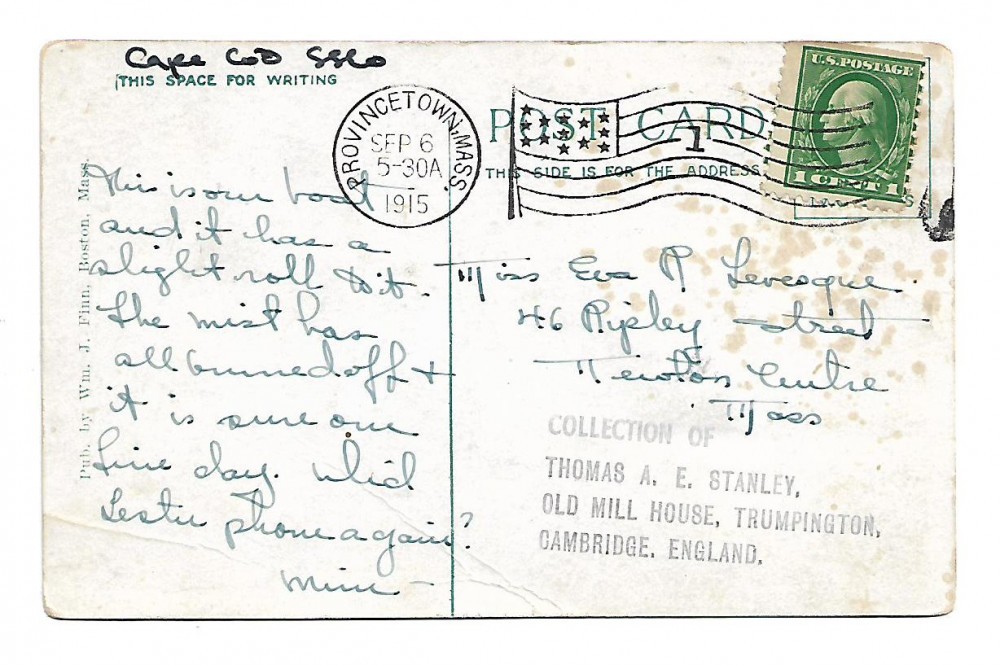 Cape Cod SSCo
THIS SPACE FOR WRITING
POST CARD
THIS SIDE IS FOR THE ADDRESS
PROVINCETOWN, MASS.
SEP 6
5-30A
1915
1
U.S. POSTAGE
1 CENT 1
Pub. by Wm. J. Finn, Boston, Mass.
This is our boat
and it has a
slight roll to it.
The mist has
all burned off +
it is sure one
fine day. Did
Lester phone again?
Mim
Miss Eva M Levesque
46 Ripley Street
Newton Centre
Mass
COLLECTION OF
THOMAS A. E. STANLEY,
OLD MILL HOUSE, TRUMPINGTON,
CAMBRIDGE. ENGLAND.